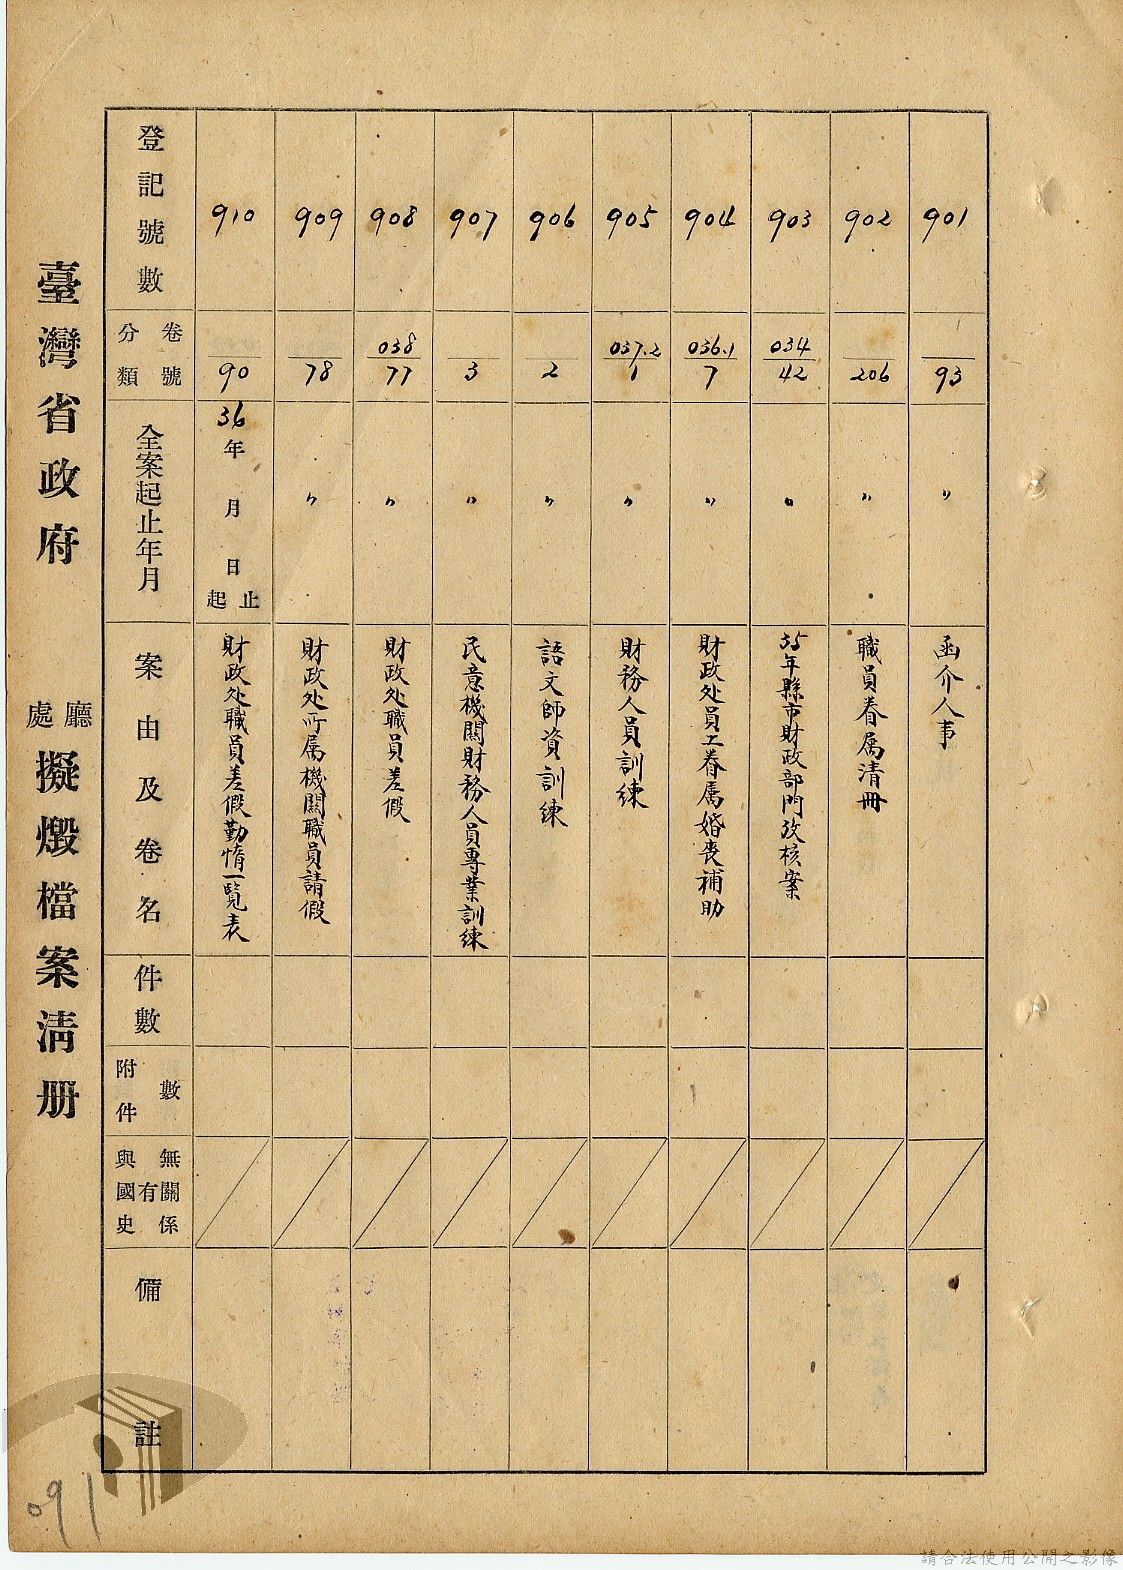 臺灣省政府 廳處 擬燬檔案清册
登記號數 910 909 908 907 906 905 904 903 902 901
分類卷號 90 78 038/77 3 2 037.2/1 036.1/7 034/42 206 93
全案起止年月 36年 月 日起止 〃 〃 〃 〃 〃 〃 〃 〃 〃
案由及卷名
財政处職員差假勤惰一覽表
財政处所属機關職員請假
財政处職員差假
民意機關財務人員專業訓練
語文師資訓練
財務人員訓練
財政处員工眷属婚喪補助
35年縣市財政部門攷核案
職員眷属清冊
函介人事
件數
附件數
與國史有無關係
備註
091
請合法使用公開之影像